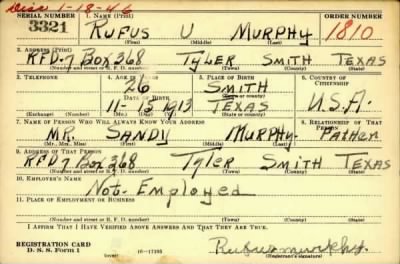 Disc 1-18-46
SERIAL NUMBER 1. NAME (Print) ORDER NUMBER
3321 RUFUS U MURPHY 1810
(First) (Middle) (Last)
2. ADDRESS (Print)
RFD-7 Box 368 TYLER SMITH TEXAS
(Number and street or R. F. D. number) (Town) (County) (State)
3. TELEPHONE 4. AGE IN YEARS 5. PLACE OF BIRTH 6. COUNTRY OF CITIZENSHIP
26 SMITH
DATE OF BIRTH (Town or county)
11-15-1913 TEXAS U.S.A.
(Exchange) (Number) (Mo.) (Day) (Yr.) (State or country)
7. NAME OF PERSON WHO WILL ALWAYS KNOW YOUR ADDRESS 8. RELATIONSHIP OF THAT PERSON
MR. SANDY MURPHY. Father
(Mr., Mrs., Miss) (First) (Middle) (Last)
9. ADDRESS OF THAT PERSON
RFD 7 Box 368 Tyler SMITH TEXAS
(Number and street or R. F. D. number) (Town) (County) (State)
10. EMPLOYER'S NAME
Not-Employed
11. PLACE OF EMPLOYMENT OR BUSINESS
(Number and street or R. F. D. number) (Town) (County) (State)
I AFFIRM THAT I HAVE VERIFIED ABOVE ANSWERS AND THAT THEY ARE TRUE.
REGISTRATION CARD
D. S. S. Form 1 16-17105 Rufus murphy
(Registrant's signature)